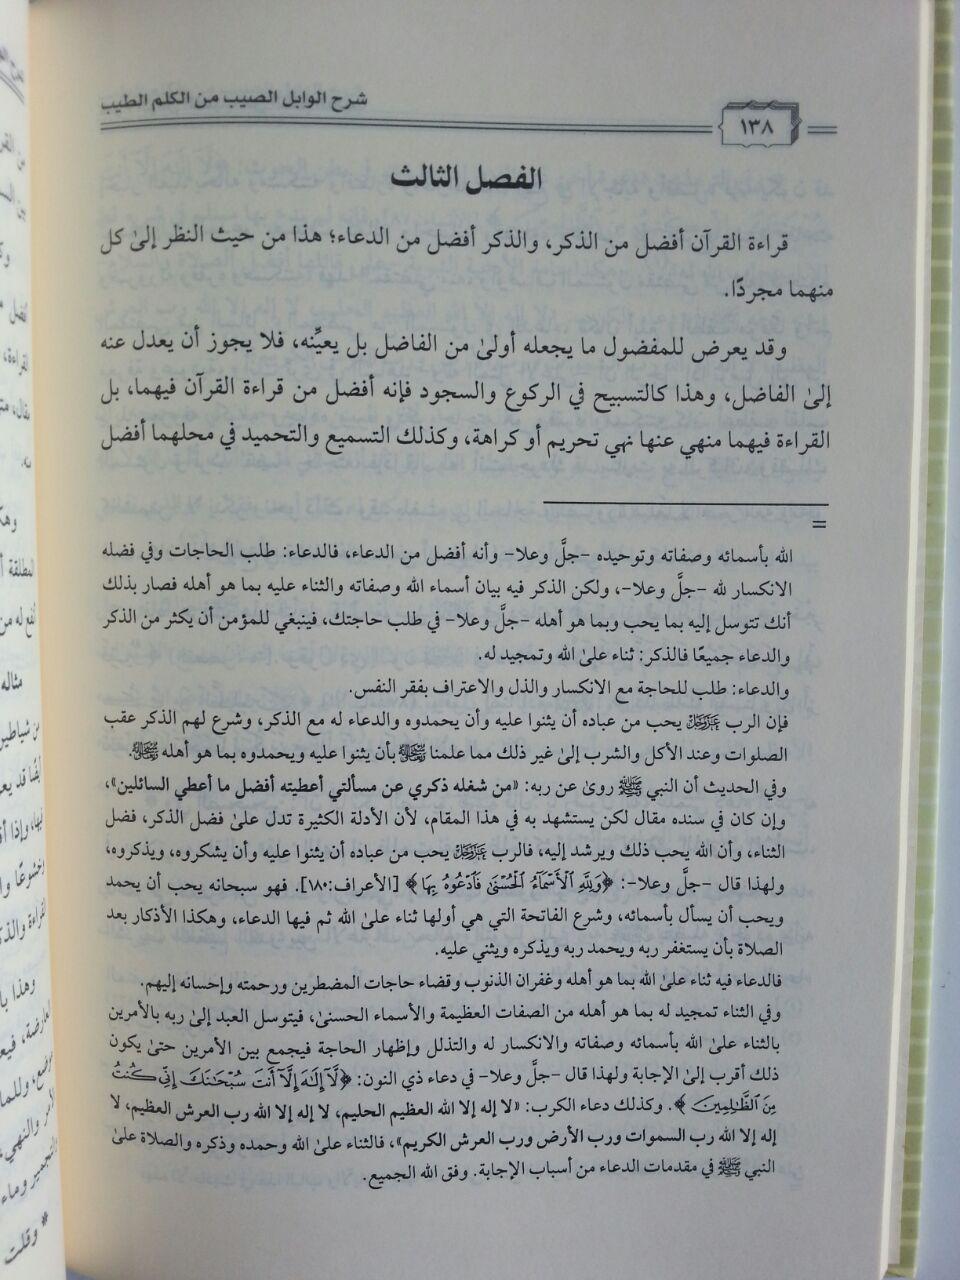 شرح الوابل الصيب من الكلم الطيب
١٣٨
الفصل الثالث
قراءة القرآن أفضل من الذكر، والذكر أفضل من الدعاء؛ هذا من حيث النظر إلىٰ كل
منهما مجردًا.
وقد يعرض للمفضول ما يجعله أولىٰ من الفاضل بل يعيِّنه، فلا يجوز أن يعدل عنه
إلىٰ الفاضل، وهذا كالتسبيح في الركوع والسجود فإنه أفضل من قراءة القرآن فيهما، بل
القراءة فيهما منهي عنها نهي تحريم أو كراهة، وكذلك التسميع والتحميد في محلهما أفضل
=
الله بأسمائه وصفاته وتوحيده -جلَّ وعلا- وأنه أفضل من الدعاء، فالدعاء: طلب الحاجات وفي فضله
الانكسار لله -جلَّ وعلا-، ولكن الذكر فيه بيان أسماء الله وصفاته والثناء عليه بما هو أهله فصار بذلك
أنك تتوسل إليه بما يحب وبما هو أهله -جلَّ وعلا- في طلب حاجتك، فينبغي للمؤمن أن يكثر من الذكر
والدعاء جميعًا فالذكر: ثناء علىٰ الله وتمجيد له.
والدعاء: طلب للحاجة مع الانكسار والذل والاعتراف بفقر النفس.
فإن الرب عَزَّوَجَلَّ يحب من عباده أن يثنوا عليه وأن يحمدوه والدعاء له مع الذكر، وشرع لهم الذكر عقب
الصلوات وعند الأكل والشرب إلىٰ غير ذلك مما علمنا ﷺ بأن يثنوا عليه ويحمدوه بما هو أهله ﷺ.
وفي الحديث أن النبي ﷺ روىٰ عن ربه: «من شغله ذكري عن مسألتي أعطيته أفضل ما أعطي السائلين»،
وإن كان في سنده مقال لكن يستشهد به في هذا المقام، لأن الأدلة الكثيرة تدل علىٰ فضل الذكر، فضل
الثناء، وأن الله يحب ذلك ويرشد إليه، فالرب عَزَّوَجَلَّ يحب من عباده أن يثنوا عليه وأن يشكروه، ويذكروه،
ولهذا قال -جلَّ وعلا-: ﴿وَلِلَّهِ ٱلْأَسْمَآءُ ٱلْحُسْنَىٰ فَٱدْعُوهُ بِهَا﴾ [الأعراف:١٨٠]. فهو سبحانه يحب أن يحمد
ويحب أن يسأل بأسمائه، وشرع الفاتحة التي هي أولها ثناء علىٰ الله ثم فيها الدعاء، وهكذا الأذكار بعد
الصلاة بأن يستغفر ربه ويحمد ربه ويذكره ويثني عليه.
فالدعاء فيه ثناء علىٰ الله بما هو أهله وغفران الذنوب وقضاء حاجات المضطرين ورحمته وإحسانه إليهم.
وفي الثناء تمجيد له بما هو أهله من الصفات العظيمة والأسماء الحسنىٰ، فيتوسل العبد إلىٰ ربه بالأمرين
بالثناء علىٰ الله بأسمائه وصفاته والانكسار له والتذلل وإظهار الحاجة فيجمع بين الأمرين حتىٰ يكون
ذلك أقرب إلىٰ الإجابة ولهذا قال -جلَّ وعلا- في دعاء ذي النون: ﴿لَّآ إِلَٰهَ إِلَّآ أَنتَ سُبْحَٰنَكَ إِنِّي كُنتُ
مِنَ ٱلظَّٰلِمِينَ﴾. وكذلك دعاء الكرب: «لا إله إلا الله العظيم الحليم، لا إله إلا الله رب العرش العظيم، لا
إله إلا الله رب السموات ورب الأرض ورب العرش الكريم»، فالثناء علىٰ الله وحمده وذكره والصلاة علىٰ
النبي ﷺ في مقدمات الدعاء من أسباب الإجابة. وفق الله الجميع.